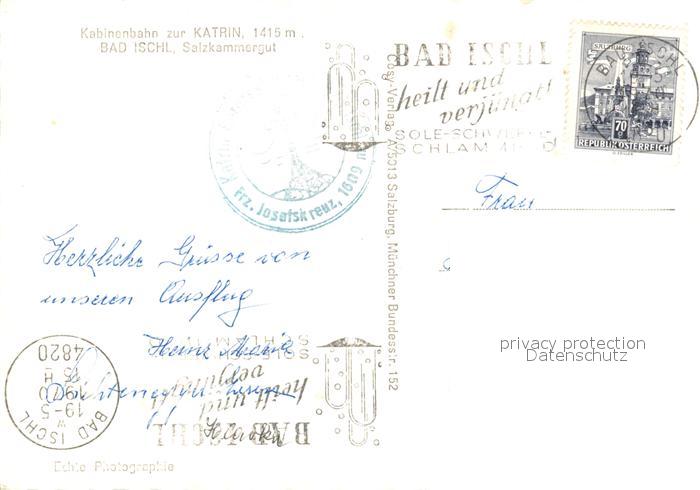 Kabinenbahn zur KATRIN, 1415 m.
BAD ISCHL, Salzkammergut
BAD ISCHL
heilt und
verjüngt
SOLE-SCHWEFEL
SCHLAMM
SALZBURG
70
REPUBLIK ÖSTERREICH
BAD ISCHL
Frz. Josefskreuz, 1609 m
Cosy-Verlag, A/5013 Salzburg, Münchner Bundesstr. 152
Frau
Herzliche Grüsse von
unseren Ausflug
Heinz Maria
BAD ISCHL
19-5
1970
4820
heilt und
verjüngt
BAD ISCHL
privacy protection
Datenschutz
Echte Photographie